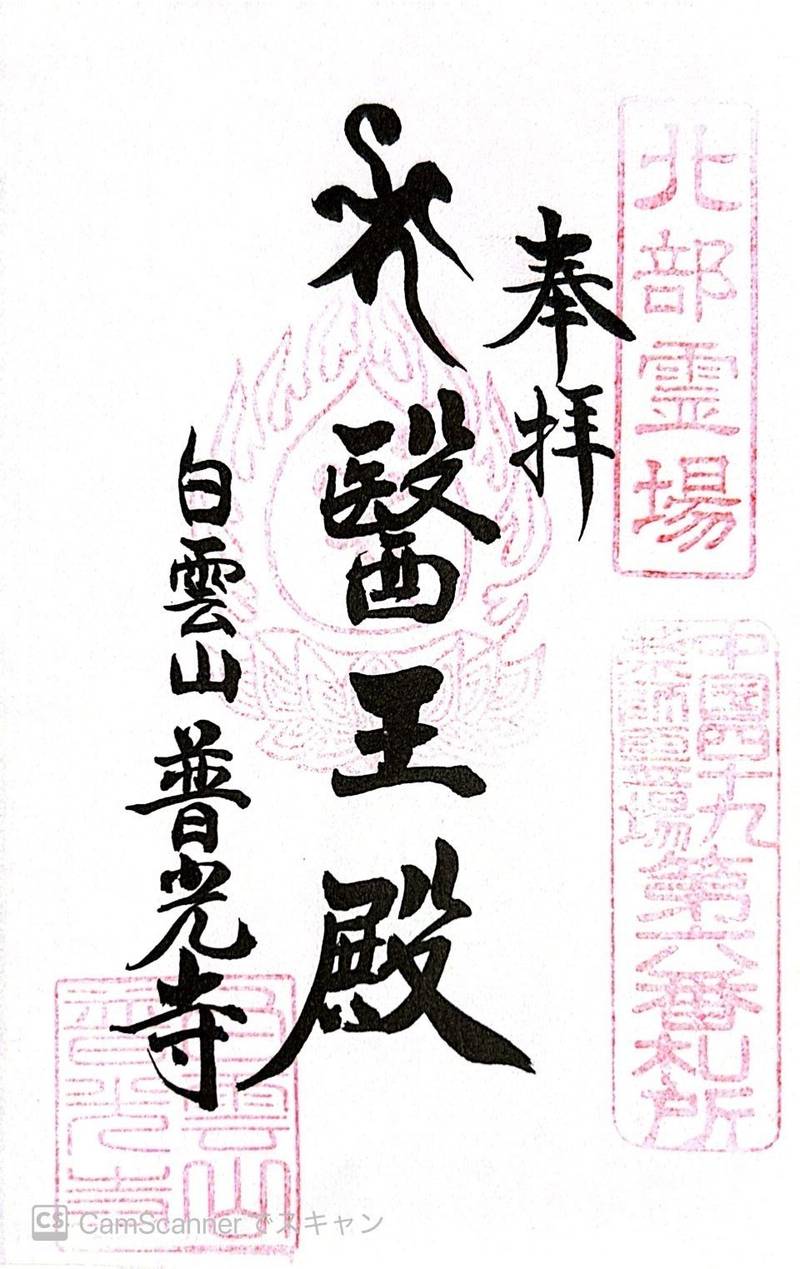 北部霊場
中國四十九
薬師霊場
第六番札所
奉拝
醫王殿
白雲山 普光寺
白雲山
普光寺
CS CamScanner でスキャン